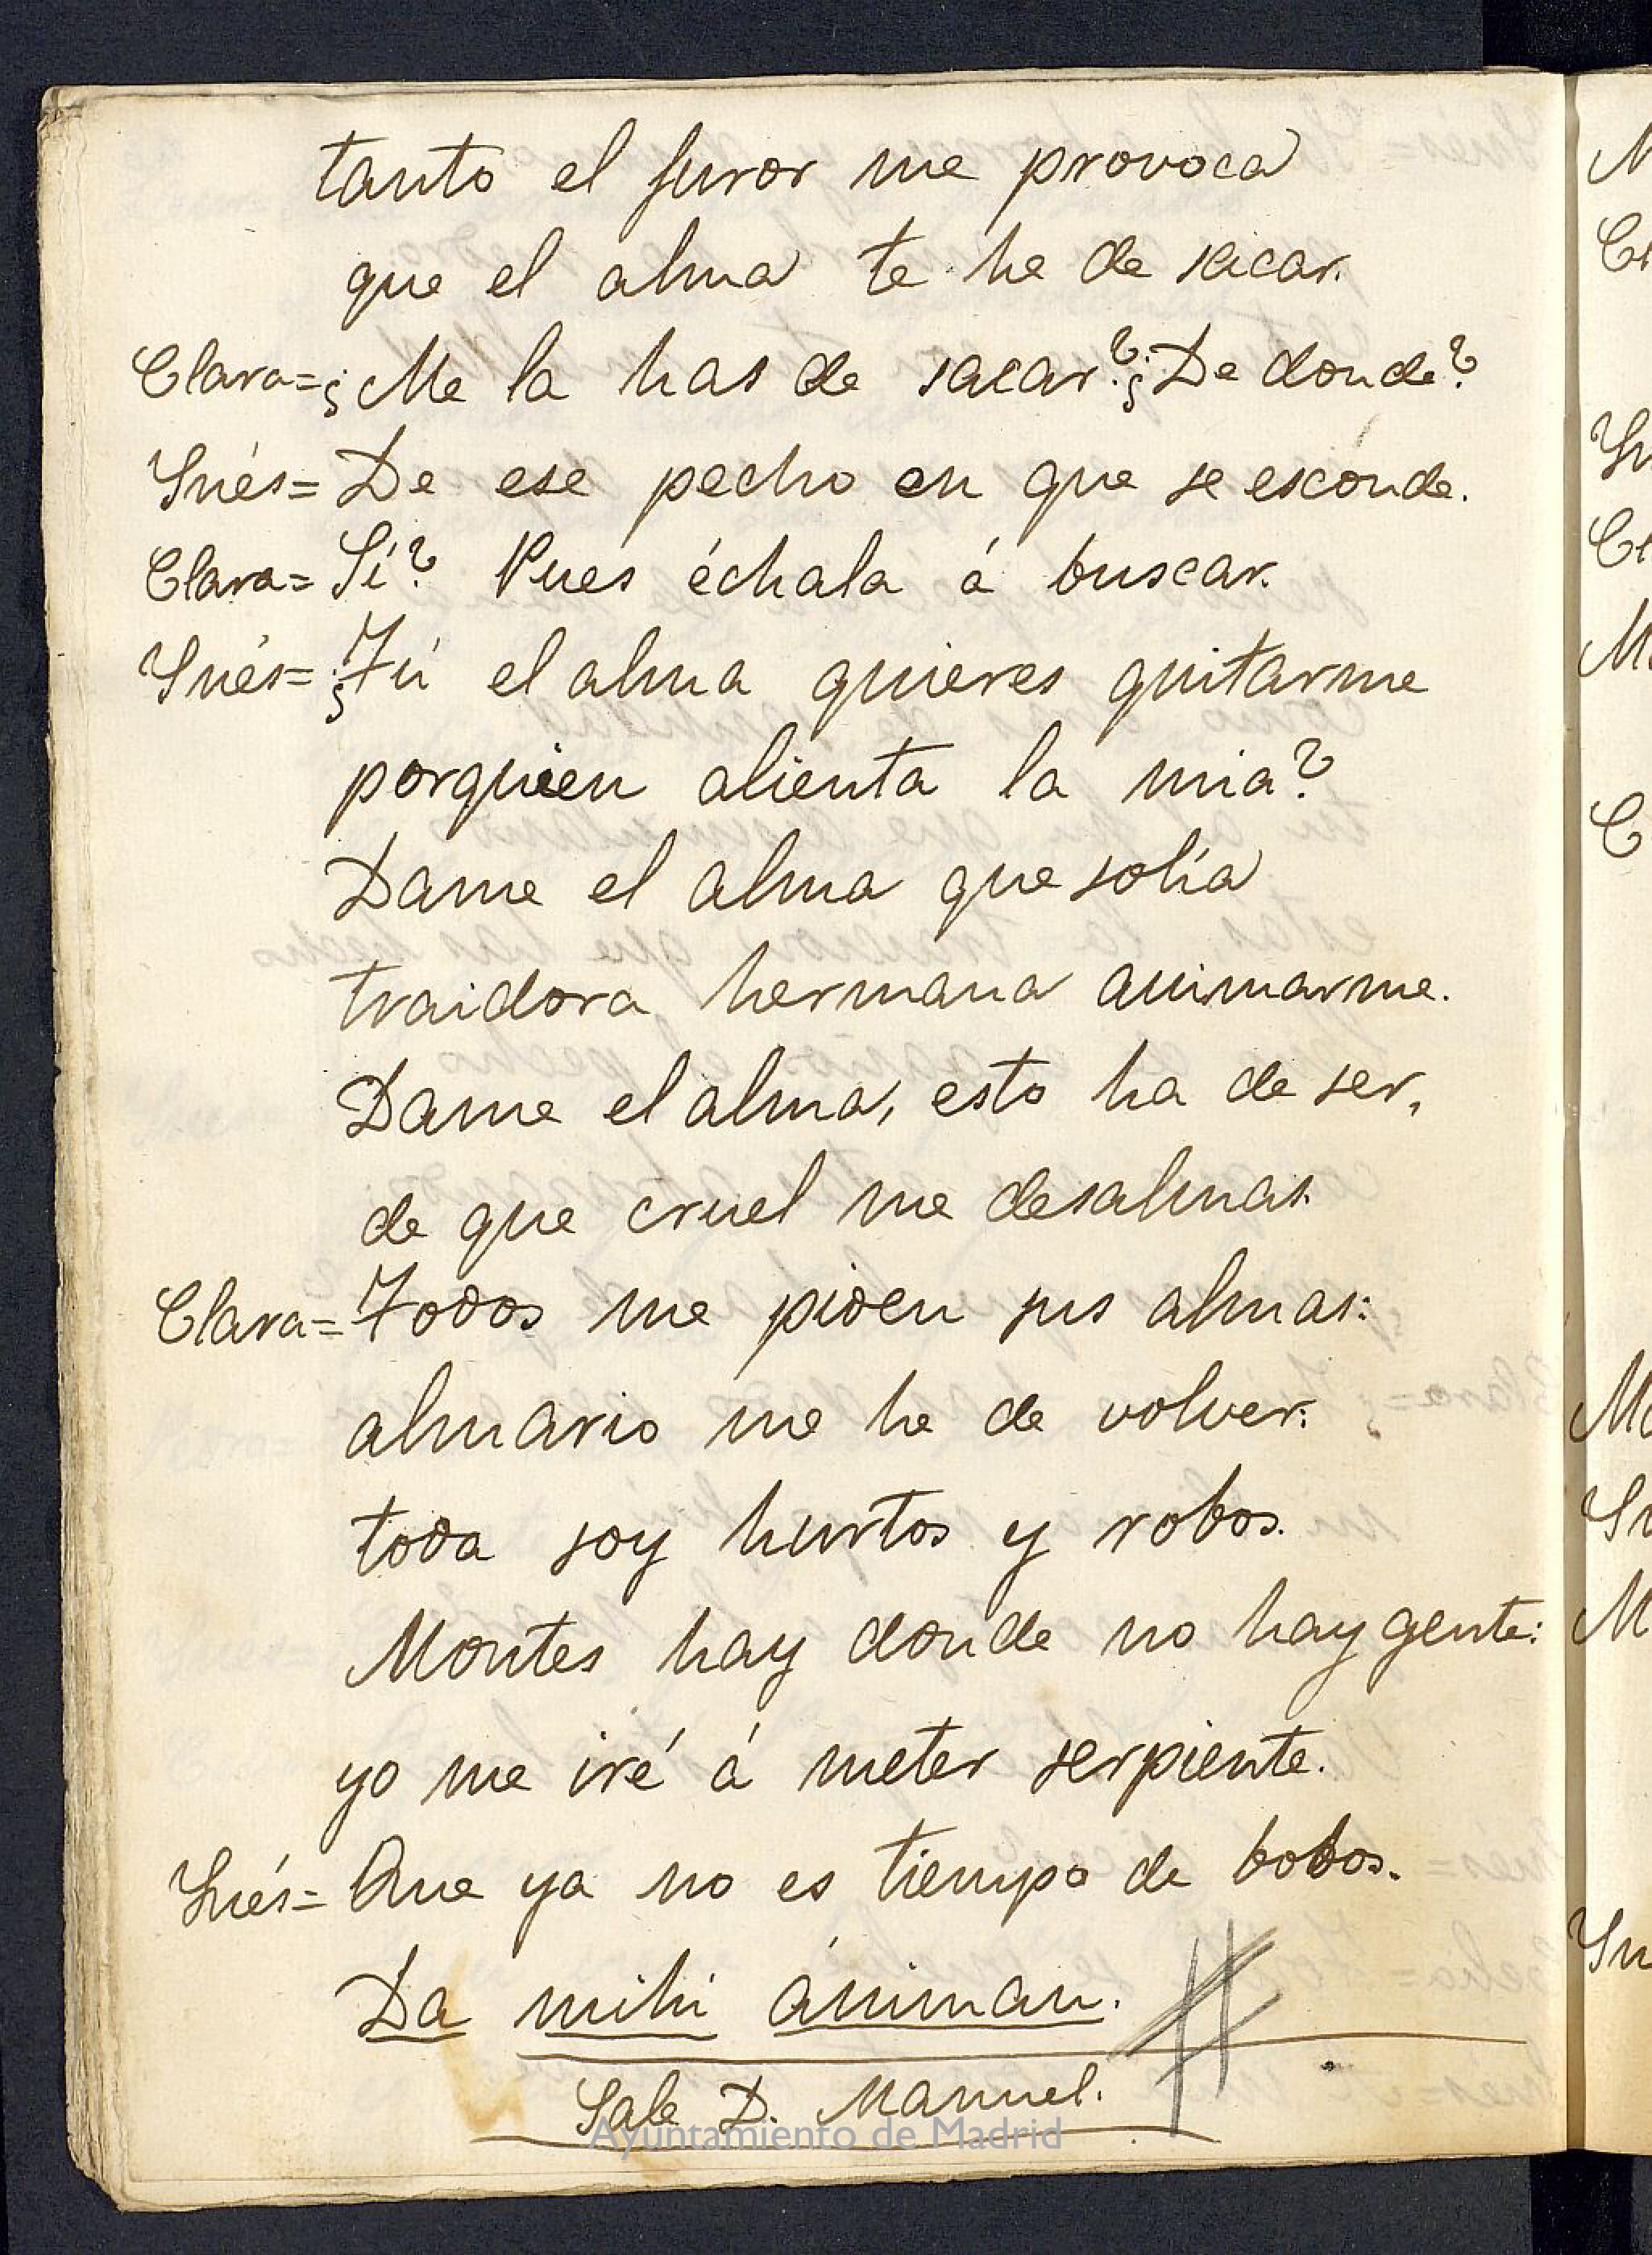 tanto el furor me provoca
que el alma te he de sacar.
Clara=¿Me la has de sacar?¿De donde?
Inés= De ese pecho en que se esconde.
Clara= Sí? Pues échala á buscar.
Inés= ¿Tú el alma quieres quitarme
porquien alienta la mia?
Dame el alma que solía
traidora hermana animarme.
Dame el alma, esto ha de ser,
de que cruel me desalmas.
Clara= Todos me piden sus almas:
almario me he de volver:
toda soy hurtos y robos.
Montes hay donde no hay gente:
yo me iré á meter serpiente.
Inés= Que ya no es tiempo de bobos.
Da mihi ániman.
Sale D. Manuel.
Ayuntamiento de Madrid
M
Cl
In
Cl
M
C
M
In
M
In